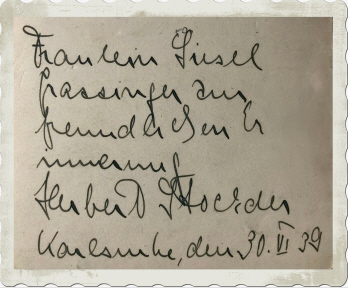 Fräulein Liesel
Grassinger zur
freundlichen Er
innerung
Herbert
Karlsruhe, den 30. VI 39